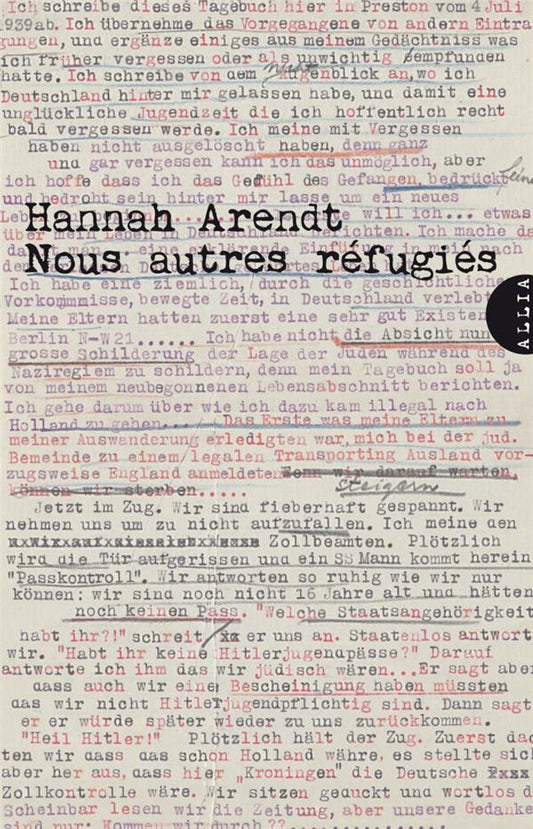 Ich schreibe dieses Tagebuch hier in Preston vom 4 Juli
1939ab. Ich übernehme das Vorgegangene von andern Eintra
gungen, und ergänze einiges aus meinem Gedächtniss was
ich früher vergessen oder als unwichtig empfunden
hatte. Ich schreibe von dem Augenblick an, wo ich
Deutschland hinter mir gelassen habe, und damit eine
unglückliche Jugendzeit die ich hoffentlich recht
bald vergessen werde. Ich meine mit Vergessen
haben nicht ausgelöscht haben, denn ganz
und gar vergessen kann ich das unmöglich, aber
ich hoffe dass ich das Gefühl des Gefangen, bedrückt
und bedroht sein hinter mir lasse um ein neues
Hannah Arendt
will ich... etwas
über mein Leben in berichten. Ich mache
Nous autres réfugiés
ALLIA
Ich habe eine ziemlich, durch die geschichtliche
Vorkommisse, bewegte Zeit, in Deutschland verlebt
Meine Eltern hatten zuerst eine sehr gut Existen
Berlin N-W21...... Ich habe nicht die Absicht nun
grosse Schilderung der Lage der Juden während des
Naziregiem zu schildern, denn mein Tagebuch soll ja
von meinem neubegonnenen Lebensabschnitt berichten.
Ich gehe darum über wie ich dazu kam illegal nach
Holland zu gehen..../ Das Erste was meine Eltern zu
meiner Auswanderung erledigten war, mich bei der jud.
Gemeinde zu einem/legalen Transporting Ausland vor-
zugsweise England anmeldeten wenn wir darauf warten,
können wir sterben..... steigern
Jetzt im Zug. Wir sind fieberhaft gespannt. Wir
nehmen uns um zu nicht aufzufallen. Ich meine den
Zollbeamten. Plötzlich
wird die Tür aufgerissen und ein SS Mann kommt herein
"Passkontroll". Wir antworten so ruhig wie wir nur
können: wir sind noch nicht 16 Jahre alt und hätten
noch keinen Pass. "Welche Staatsangehörigkeit
habt ihr?!" schreit er uns an. Staatenlos antwort
wir. "Habt ihr keine Hitlerjugendpässe?" Darauf
antworte ich ihm das wir jüdisch wären...Er sagt aber
dass auch wir eine Bescheinigung haben müssten
das wir nicht Hitlerjugendpflichtig sind. Dann sagt
er er würde später wieder zu uns zurückkommen.
"Heil Hitler!" Plötzlich hält der Zug. Zuerst dac
ten wir dass das schon Holland währe, es stellte sich
aber her aus, dass hier "Kroningen" die Deutsche
Zollkontrolle wäre. Wir sitzen geduckt und wortlos d
Scheinbar lesen wir die Zeitung, aber unsere Gedanke
sind nur: Kommen wir durch ??..............